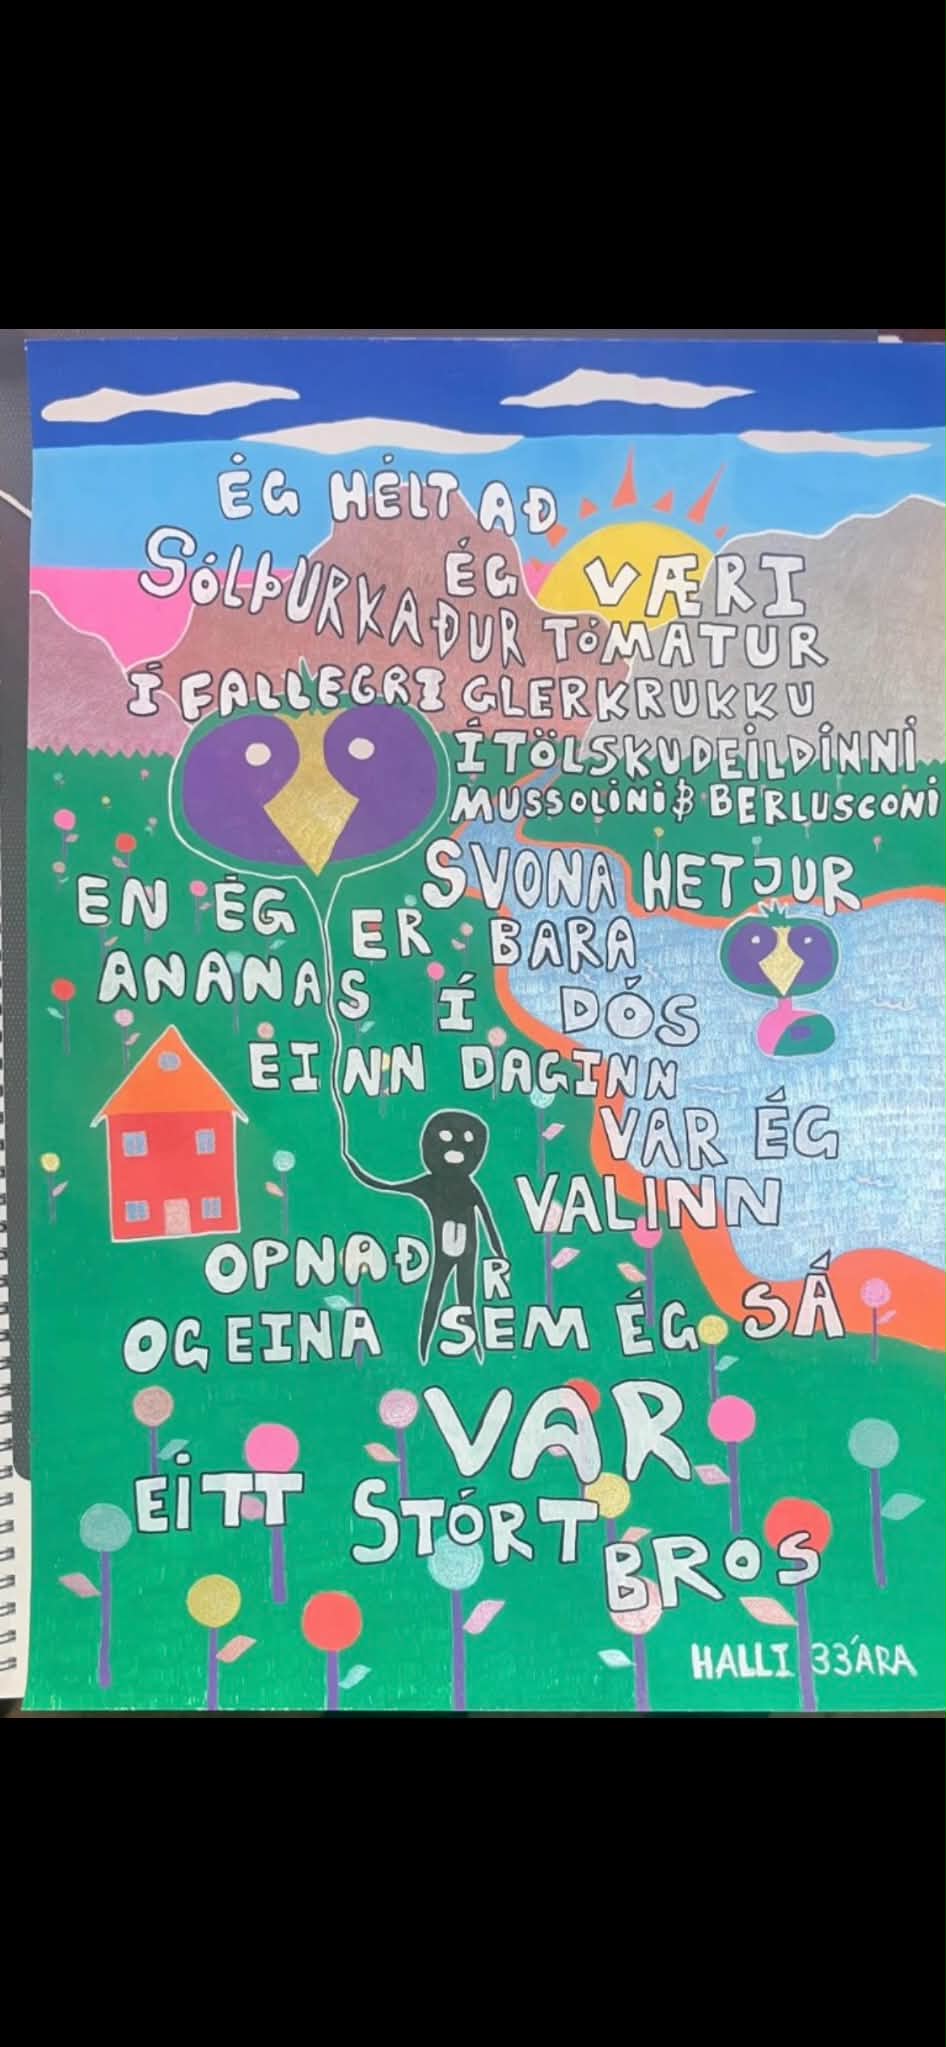 ÉG HÉLT AÐ
ÉG VÆRI
SÓLÞURKAÐUR TÓMATUR
Í FALLEGRI GLERKRUKKU
Í TÖLSKUDEILDÍNNÍ
MUSSOLÍNÍ & BERLUSCONI
SVONA HETJUR
EN ÉG ER BARA
ANANAS Í DÓS
EINN DAGINN
VAR ÉG
VALINN
OPNAÐUR
OG EINA SEM ÉG SÁ
VAR
EITT STÓRT
BROS
HALLI 33 ÁRA